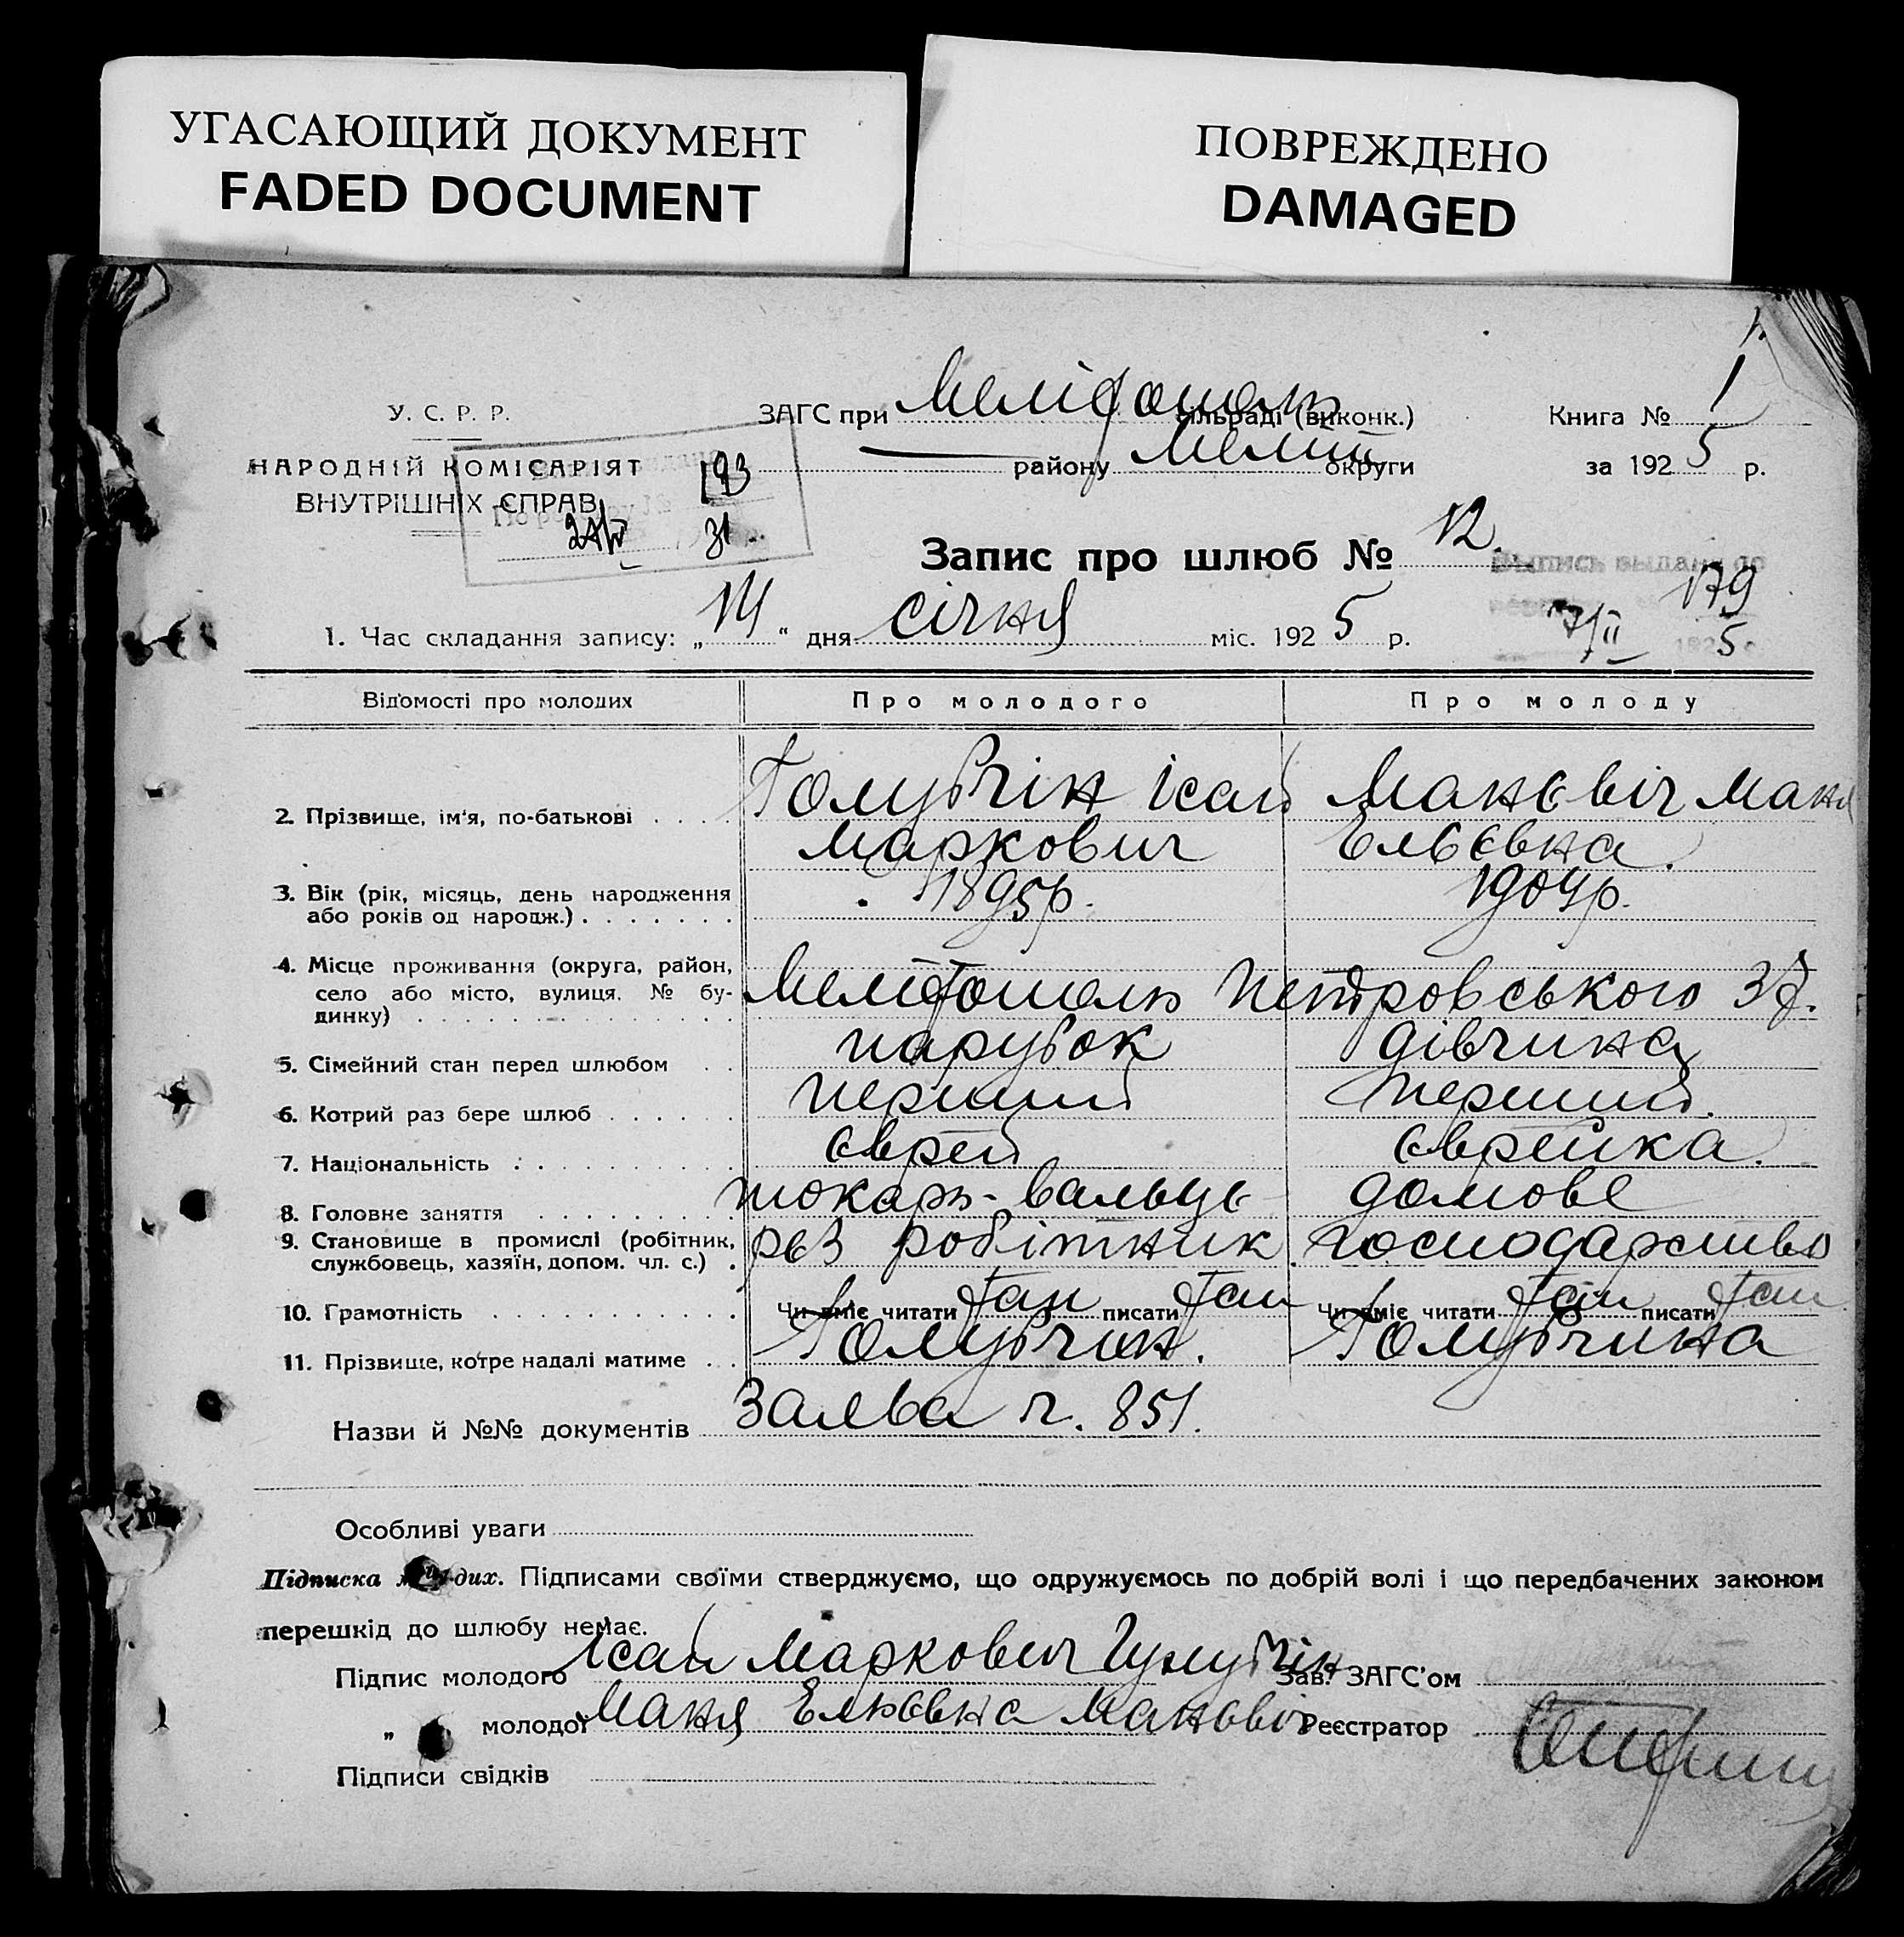 УГАСАЮЩИЙ ДОКУМЕНТ
FADED DOCUMENT
ПОВРЕЖДЕНО
DAMAGED
1
У. С. Р. Р.
ЗАГС при Мелітополь сільраді (виконк.)
Книга №
НАРОДНІЙ КОМІСАРІЯТ
ВНУТРІШНІХ СПРАВ
193
31
району Меліт округи
за 1925 р.
Запис про шлюб № 12.
Выпись выдана по
179
7/II 1925 г.
1. Час складання запису: „14" дня січня міс. 1925 р.
Відомості про молодих
Про молодого
Про молоду
2. Прізвище, ім'я, по-батькові . . . . Голубчін Ісай Маркович
Манєвіч Маня Ельєвна.
3. Вік (рік, місяць, день народження
або років од народж.) . . . . . . . 1895р.
1904р.
4. Місце проживання (округа, район,
село або місто, вулиця, № бу-
динку) . . . . Мелітополь Петровського 37.
5. Сімейний стан перед шлюбом . . парубок
дівчина
6. Котрий раз бере шлюб . . . . . . перший
перший.
7. Національність . . . . . . . . . єврей
єврейка.
8. Головне заняття . . . . . . . . . токарь-вальцє
домове
9. Становище в промислі (робітник,
службовець, хазяїн, допом. чл. с.) . рєз робітник
господарство
10. Грамотність . . . . . . . . . . . Чи вміє читати так писати так
Чи вміє читати так писати так
11. Прізвище, котре надалі матиме . . Голубчин.
Голубчина
Назви й №№ документів Заява ч. 851.
Особливі уваги
Підписка молодих. Підписами своїми стверджуємо, що одружуємось по добрій волі і що передбачених законом
перешкід до шлюбу немає.
Підпис молодого Ісай Маркович Гулубчін
Зав. ЗАГС'ом
„ молодої Маня Елюєвна Манєвіч
Реєстратор
Підписи свідків